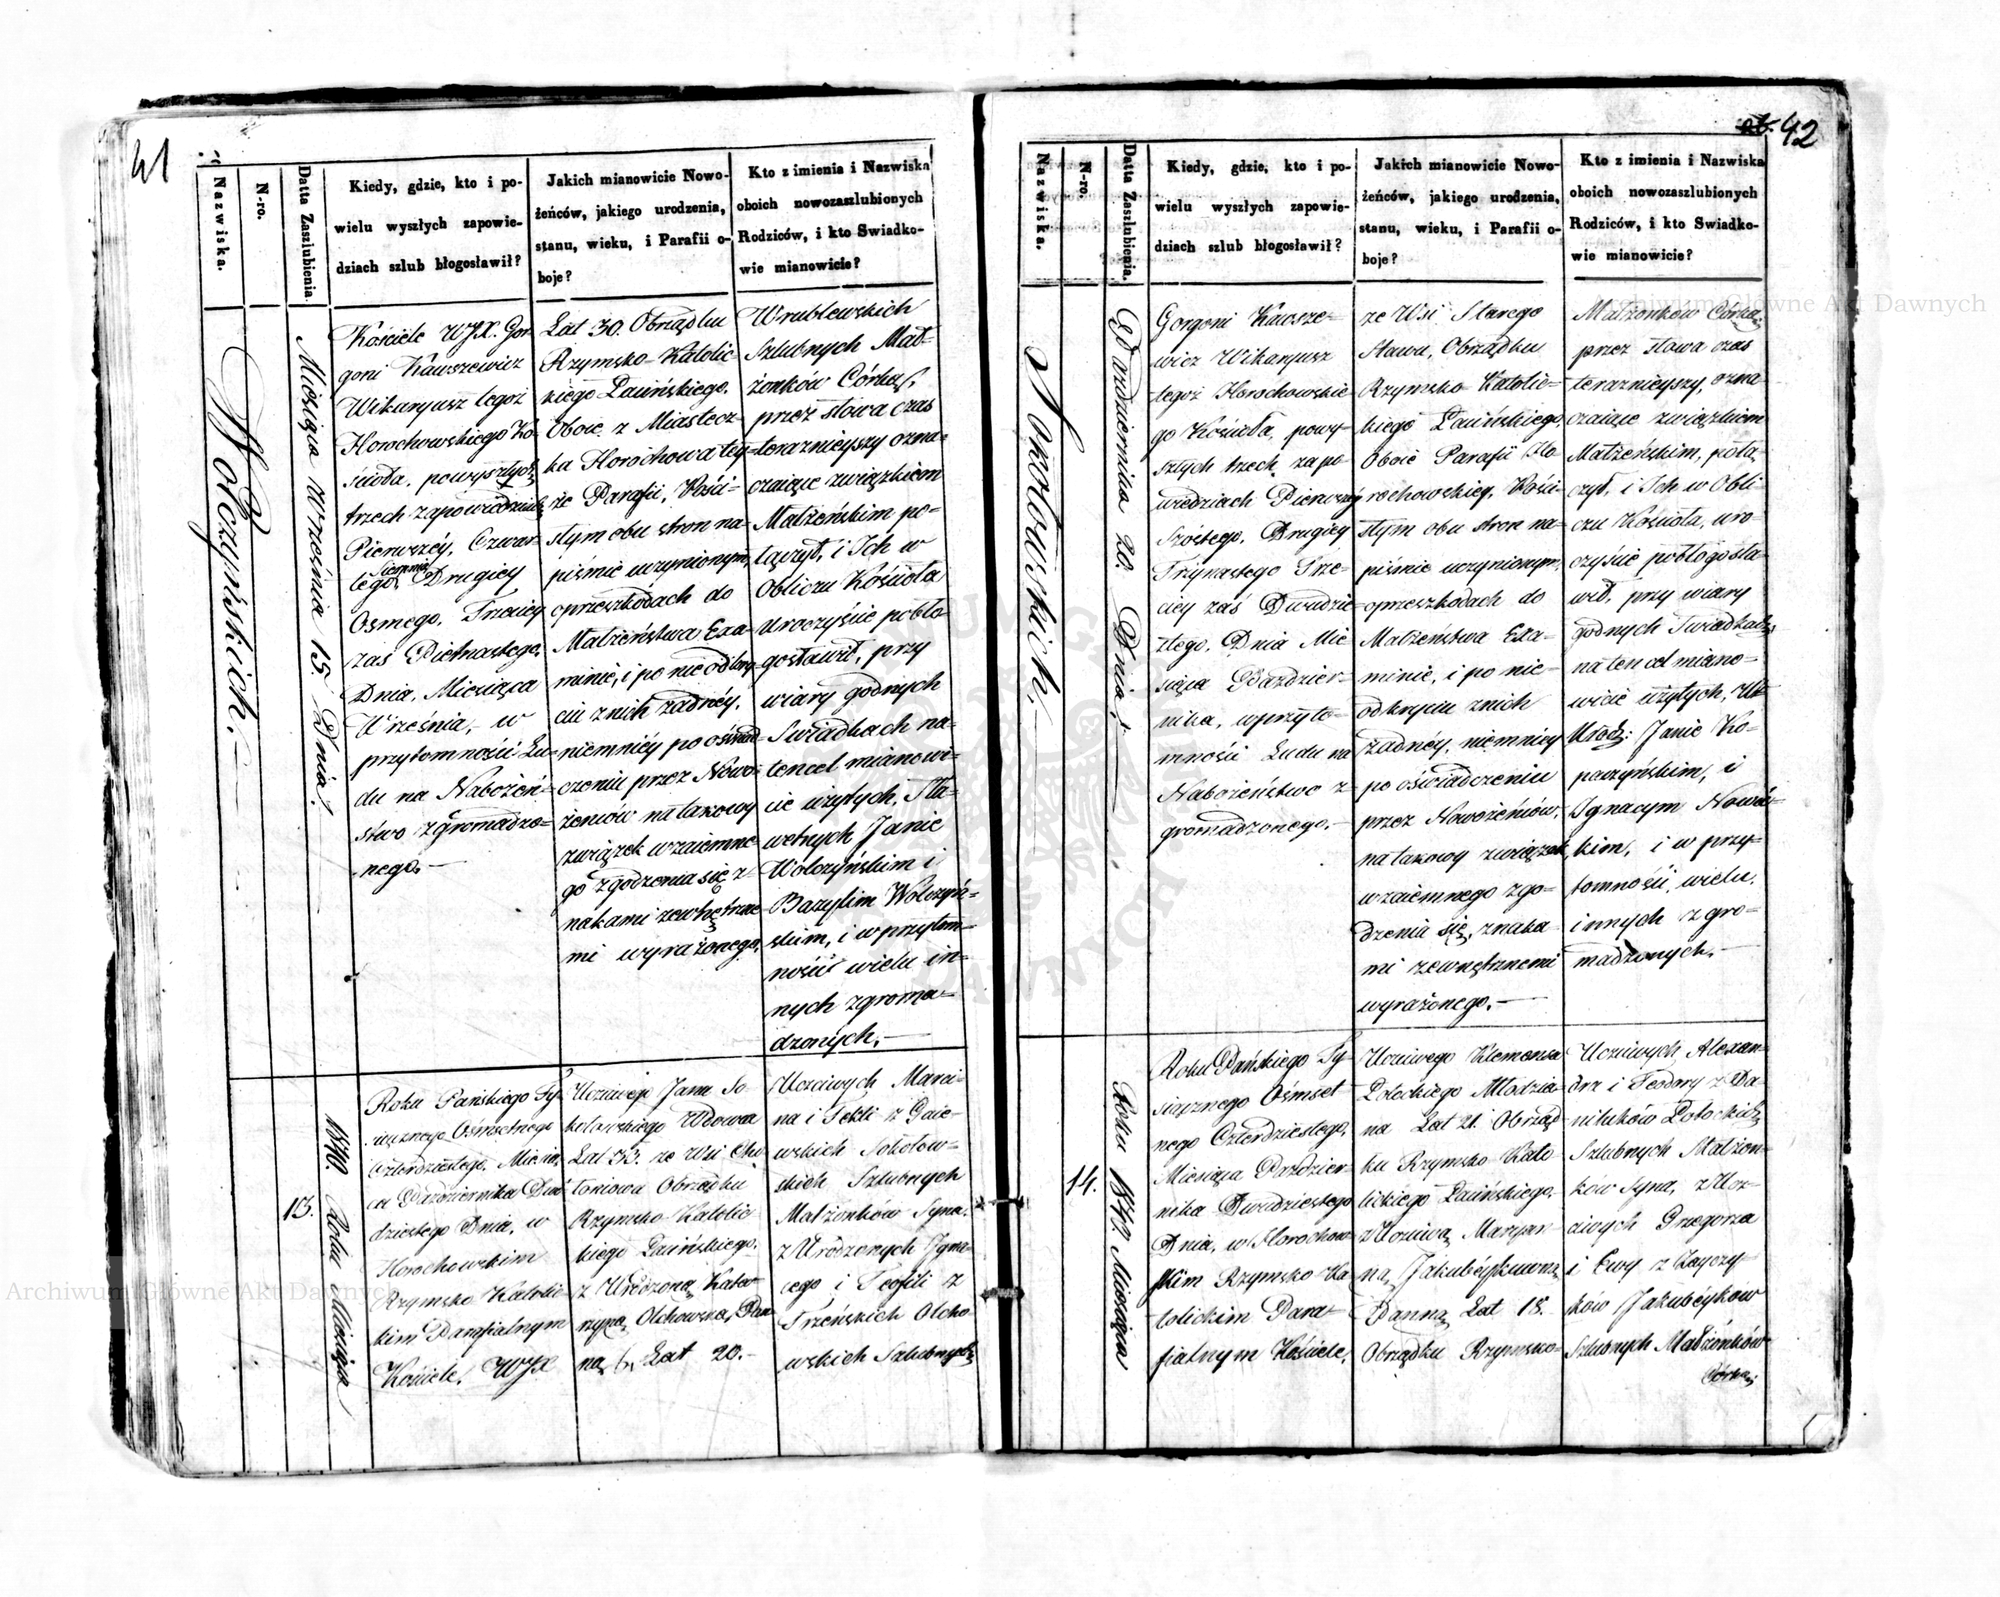 41
Nazwiska.
N-ro.
Datta Zaszlubienia.
Kiedy, gdzie, kto i po-
wielu wyszłych zapowie-
dziach szlub błogosławił?
Jakich mianowicie Nowo-
żeńców, jakiego urodzenia,
stanu, wieku, i Parafii o-
boje?
Kto z imienia i Nazwiska
oboich nowozaszlubionych
Rodziców, i kto Swiadko-
wie mianowicie?
Wolczyńskich.—
Miesiąca Września 15. Dnia.
Kościele WJX. Gor
goni Kawszewicz
Wikaryusz tegoż
Horochowskiego Ko-
ścioła, powyszłych
trzech zapowiedziach
Pierwszéy, Czwar-
tego Sierpnia Drugiey
Osmego, Trzeciey
zaś Pietnastego
Dnia, Miesiąca
Września, w
przytomności Lu-
du na Nabożeń-
stwo zgromadzo-
nego.—
Lat 30. Obrządku
Rzymsko-Katolic
kiego Łacińskiego.
Oboie z Miastecz-
ka Horochowa tey-
że Parafii, Pości-
słym obu stron na-
piśmie uczynionym,
oprzeszkodach do
Małżeństwa Exa-
minie, i po nieodkry-
ciu z nich żadnéy,
niemniéy po oświad-
czeniu przez Nowo-
żeńców na takowy
związek wzaiemne-
go zgodzenia się z-
nakami zewnętrzne
mi wyrażonego.
Wrublewskich
Szlubnych Mał-
żonków Córką,
przez słowa czas
teraznieyszy ozna-
czaiące związkiem
Małżeńskim po-
łączył, i Ich w
Obliczu Kościoła
Uroczyście pobło-
gosławił, przy
wiary godnych
Swiadkach na-
tencel mianowi-
cie użytych, Sła-
wetnych Janie
Wolczyńskim i
Bazylim Wolczyń-
skim, i w przytom-
ności wielu in-
nych zgroma-
dzonych.—
13.
1840. Roku Miesiąca
Roku Pańskiego Ty-
siącznego Ośmsetnego
Czterdziestego, Miesią
ca Października Dwu
dziestego Dnia, w
Horochowskim
Rzymsko Katolic
kim Parafialnym
Kościele, WJX
Uczciwego Jana So
kołowskiego Wdowca
Lat 33. ze Wsi Chu
toniowa Obrządku
Rzymsko Katolic
kiego Łacińskiego.
z Urodzoną Kata
rzyną Olchowską, Pan
ną, Lat 20.—
Uczciwych Marci-
na i Tekli z Gaie-
wskich Sokołow-
skich Szlubnych
Małżonków Syna,
z Urodzonych Igna-
cego i Teofili z
Trzeńskich Olcho
wskich Szlubnych
42
Nazwiska.
N-ro.
Datta Zaszlubienia.
Kiedy, gdzie, kto i po-
wielu wyszłych zapowie-
dziach szlub błogosławił?
Jakich mianowicie Nowo-
żeńców, jakiego urodzenia,
stanu, wieku, i Parafii o-
boje?
Kto z imienia i Nazwiska
oboich nowozaszlubionych
Rodziców, i kto Swiadko-
wie mianowicie?
Sokołowskich.—
Października 20. Dnia.—
Gorgoni Kawsze-
wicz Wikaryusz
tegoż Horochowskie
go Kościoła, powy-
szłych trzech zapo-
wiedziach Pierwszéy
Szóstego, Drugiey
Trzynastego Trze-
ciey zaś Dwudzie-
stego, Dnia Mie
siąca Paździer-
nika, w przyto-
mności Ludu na
Nabożeństwo z-
gromadzonego.—
ze Wsi Starego
Stawu, Obrządku
Rzymsko Katolic-
kiego Łacińskiego,
Oboie Parafii Ho
rochowskiey, Pości-
słym obu stron na-
piśmie uczynionym,
oprzeszkodach do
Małżeństwa Exa-
minie, i po nie-
odkryciu z nich
żadnéy, niemniey
po oświadczeniu
przez Nowożeńców,
na takowy związek
wzaiemnego zgo-
dzenia się, znaka-
mi zewnętrznemi
wyrażonego.—
Małżonków Córką,
przez słowa czas
teraznieyszy, ozna-
czaiące związkiem
Małżeńskim, połą-
czył, i Ich w Obli-
czu Kościoła, uro-
czyście pobłogosła-
wił, przy wiary
godnych Swiadkach
na ten cel miano-
wicie użytych,
Janie Ko-
paczyńskim, i
Ignacym Nowic-
kim, i w przy-
tomności, wielu
innych zgro-
madzonych.—
14.
Roku 1840. Miesiąca
Roku Pańskiego Ty-
siącznego Ośmset
nego Czterdziestego,
Miesiąca Paździer-
nika Dwudziestego
Dnia, w Horochow
skim Rzymsko Ka
tolickim Para-
fialnym Kościele,
Uczciwego Klemensa
Potockiego Młodzia-
na Lat 21. Obrząd
ku Rzymsko Kato
lickiego Łacińskiego.
z Uczciwą Maryan
ną Jakubéykówną
Panną Lat 18.
Obrządku Rzymsko-
Uczciwych Alexan-
dra i Teodory z Da-
niluków Potockich
Szlubnych Małżon-
ków Syna, z Ucz-
ciwych Grzegorza
i Ewy z Zayczy
ków Jakubéyków
Szlubnych Małżonków
Córką,
Archiwum Główne Akt Dawnych
Archiwum Główne Akt Dawnych